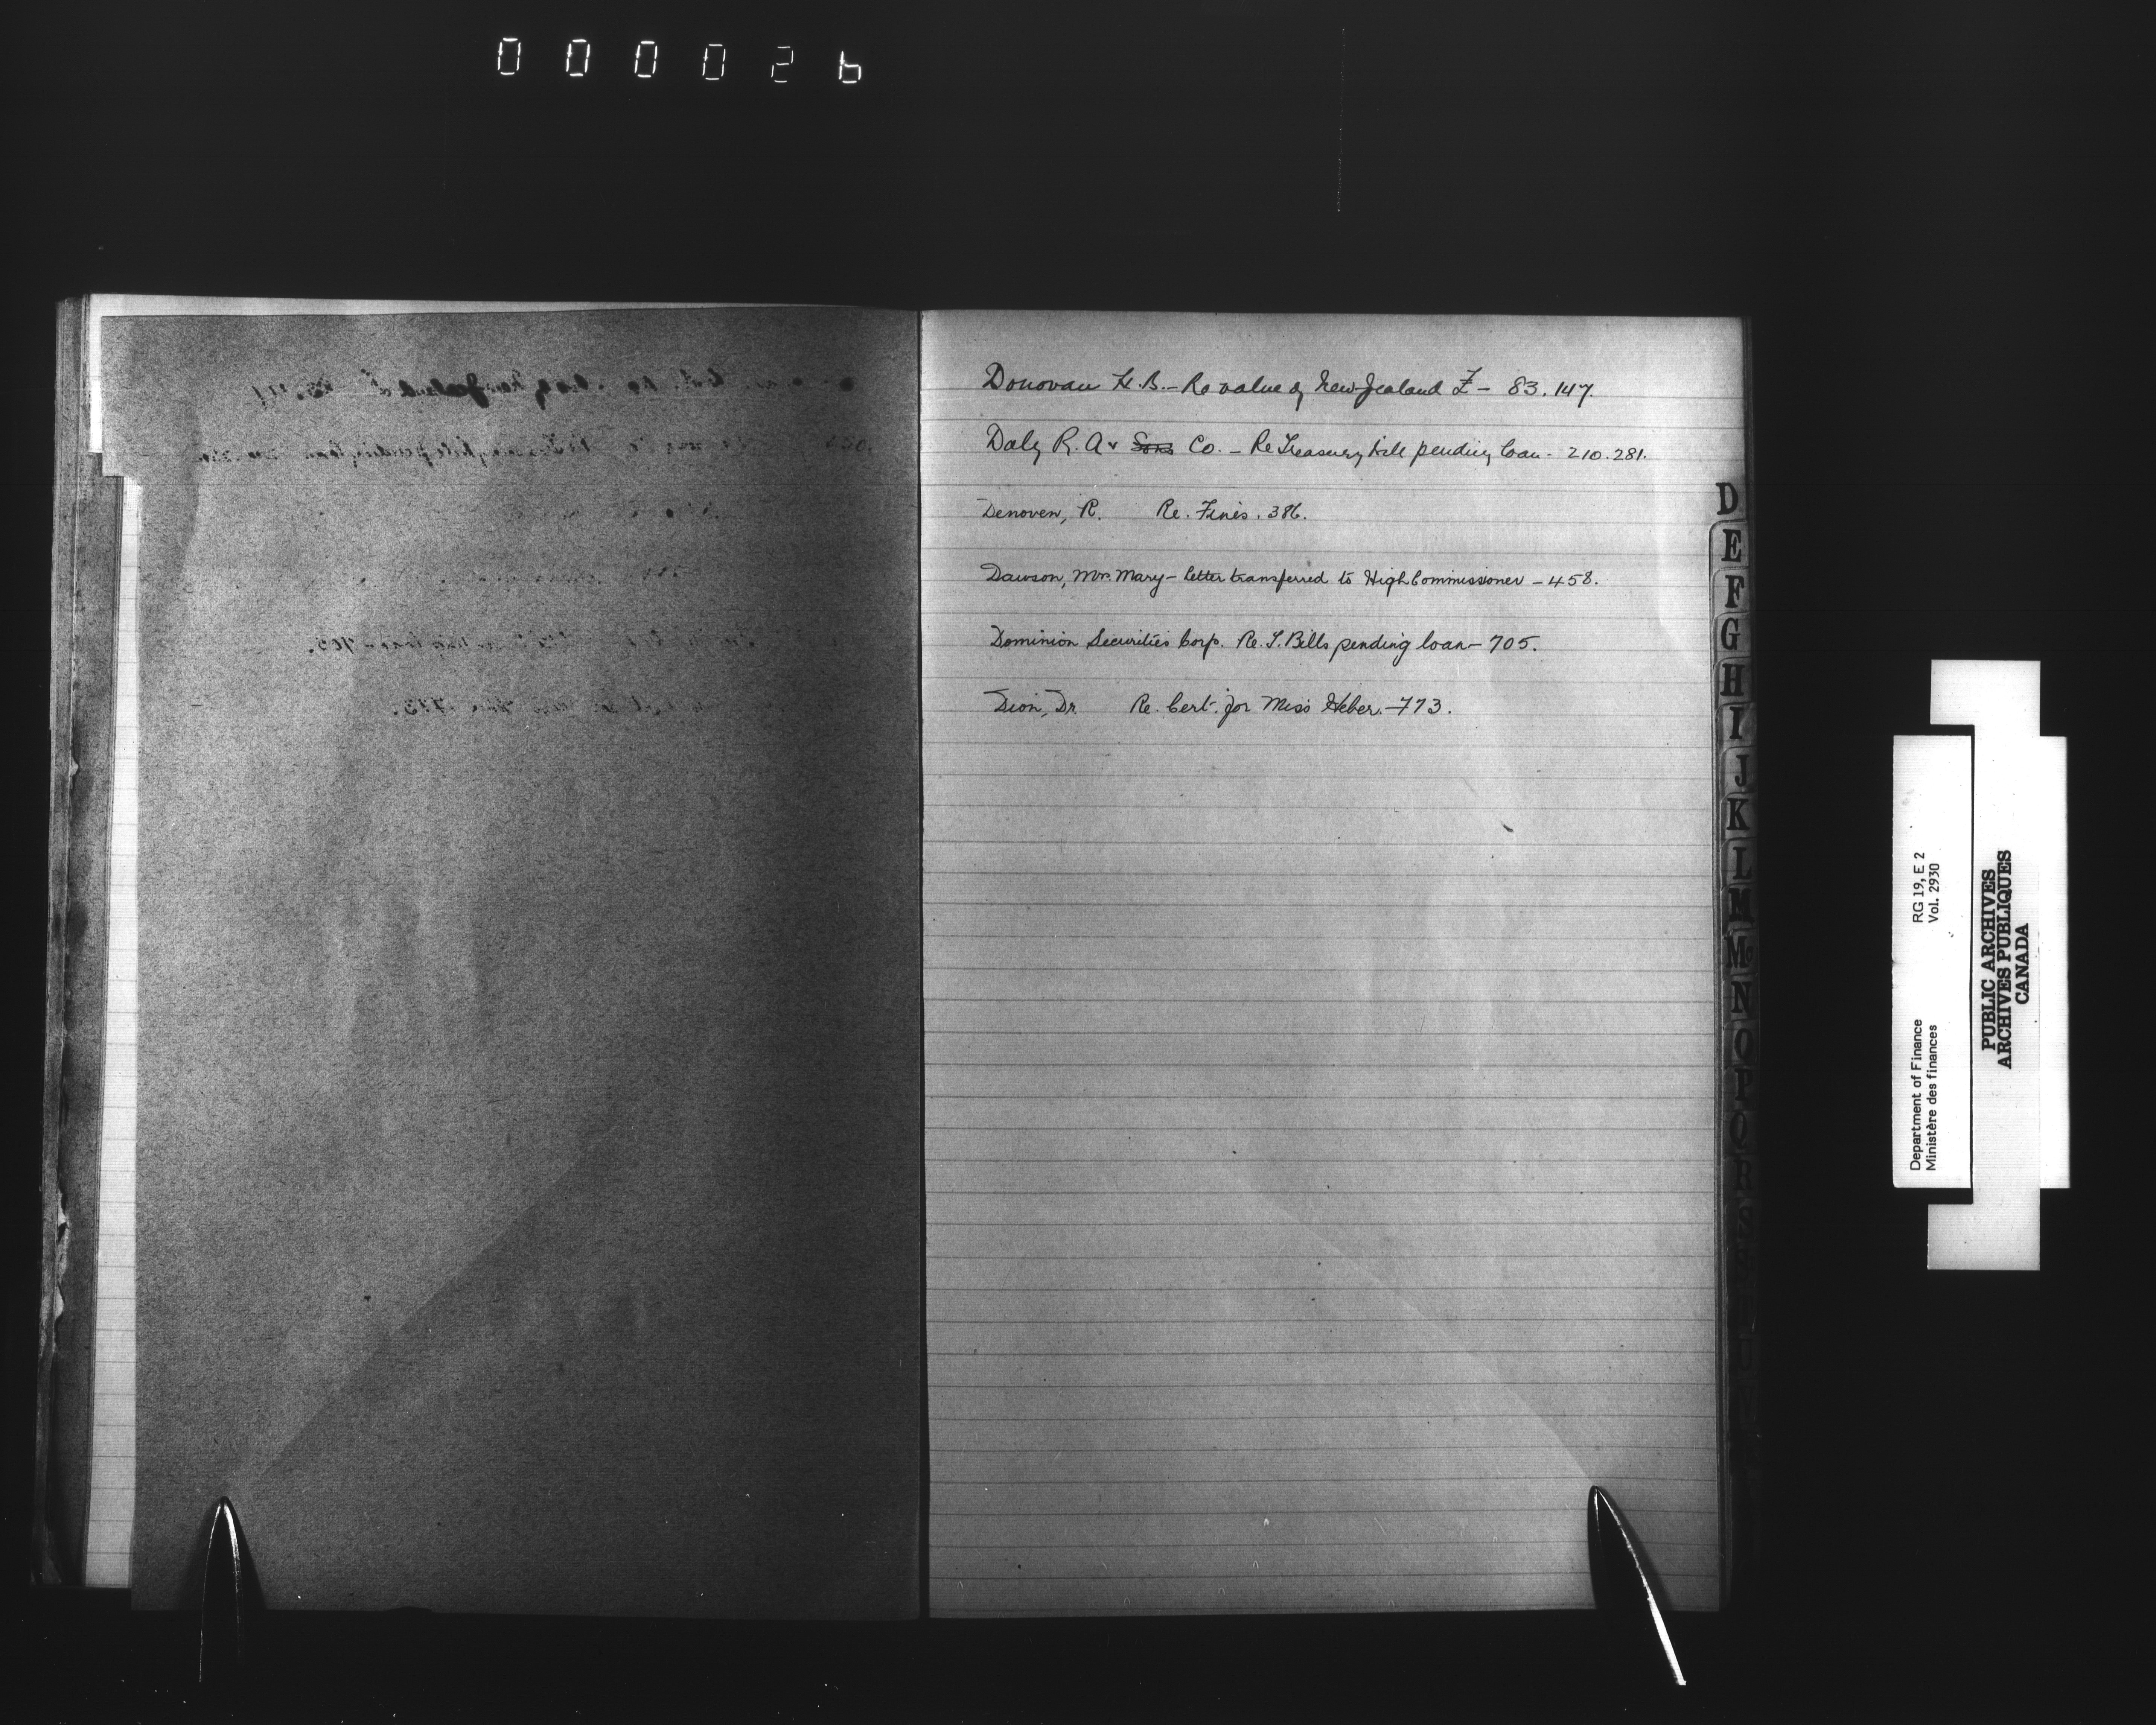 000026
Donovan H. B. - Re value of New Zealand £ - 83. 147.
Daly R. A & Sons Co. - Re Treasury bill pending loan - 210. 281.
Denoven, R. Re. Fines. 386.
Dawson, Mrs. Mary - letter transferred to High Commissioner - 458.
Dominion Securities Corp. Re. T. Bills pending loan - 705.
Dion, Dr. Re. Cert. for Miss Heber. - 773.
D
E
F
G
H
I
J
K
L
M
Mc
N
O
P
Q
R
S
Department of Finance RG 19, E 2
Ministère des finances Vol. 2930
PUBLIC ARCHIVES
ARCHIVES PUBLIQUES
CANADA